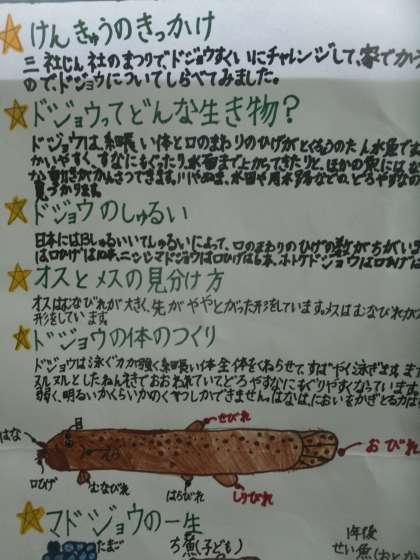 けんきゅうのきっかけ
三社じん社のまつりで、ドジョウすくいにチャレンジして、家でかう
ので、ドジョウについてしらべてみました。
ドジョウってどんな生き物?
ドジョウは、細長い体と口のまわりのひげがとくちょうのたん水魚で
かいやすく、すなにもぐったり、水面まで上がってきたりと、ほかの魚には
動きがかんさつできます。川やぬま、水田や用水路などの、どろやすなの
見つかります。
ドジョウのしゅるい
日本には
しゅるいいてしゅるいによって、口のまわりのひげの数がちがい
は口ひげは10本、ニシシマドジョウは口ひげは6本、ホトケドジョウは口ひげは
オスとメスの見分け方
オスはむなびれが大きく、先がややとがった形をしています。メスはむなびれが
形をしています。
ドジョウの体のつくり
ドジョウは泳ぐ力が強く細長い体全体をくねらせて、すばやく泳ぎます。
ヌルヌルとしたねんえきでおおわれていてどろやすなにもぐりやすくなっています
弱く、明るいかくらいかのくべつしかできません。はなは、においをかぎとる力は
はな
目
えら
せびれ
おびれ
口ひげ
むなびれ
はらびれ
しりびれ
マドジョウの一生
たまご
ち魚(子ども)
1年後
せい魚(おとな